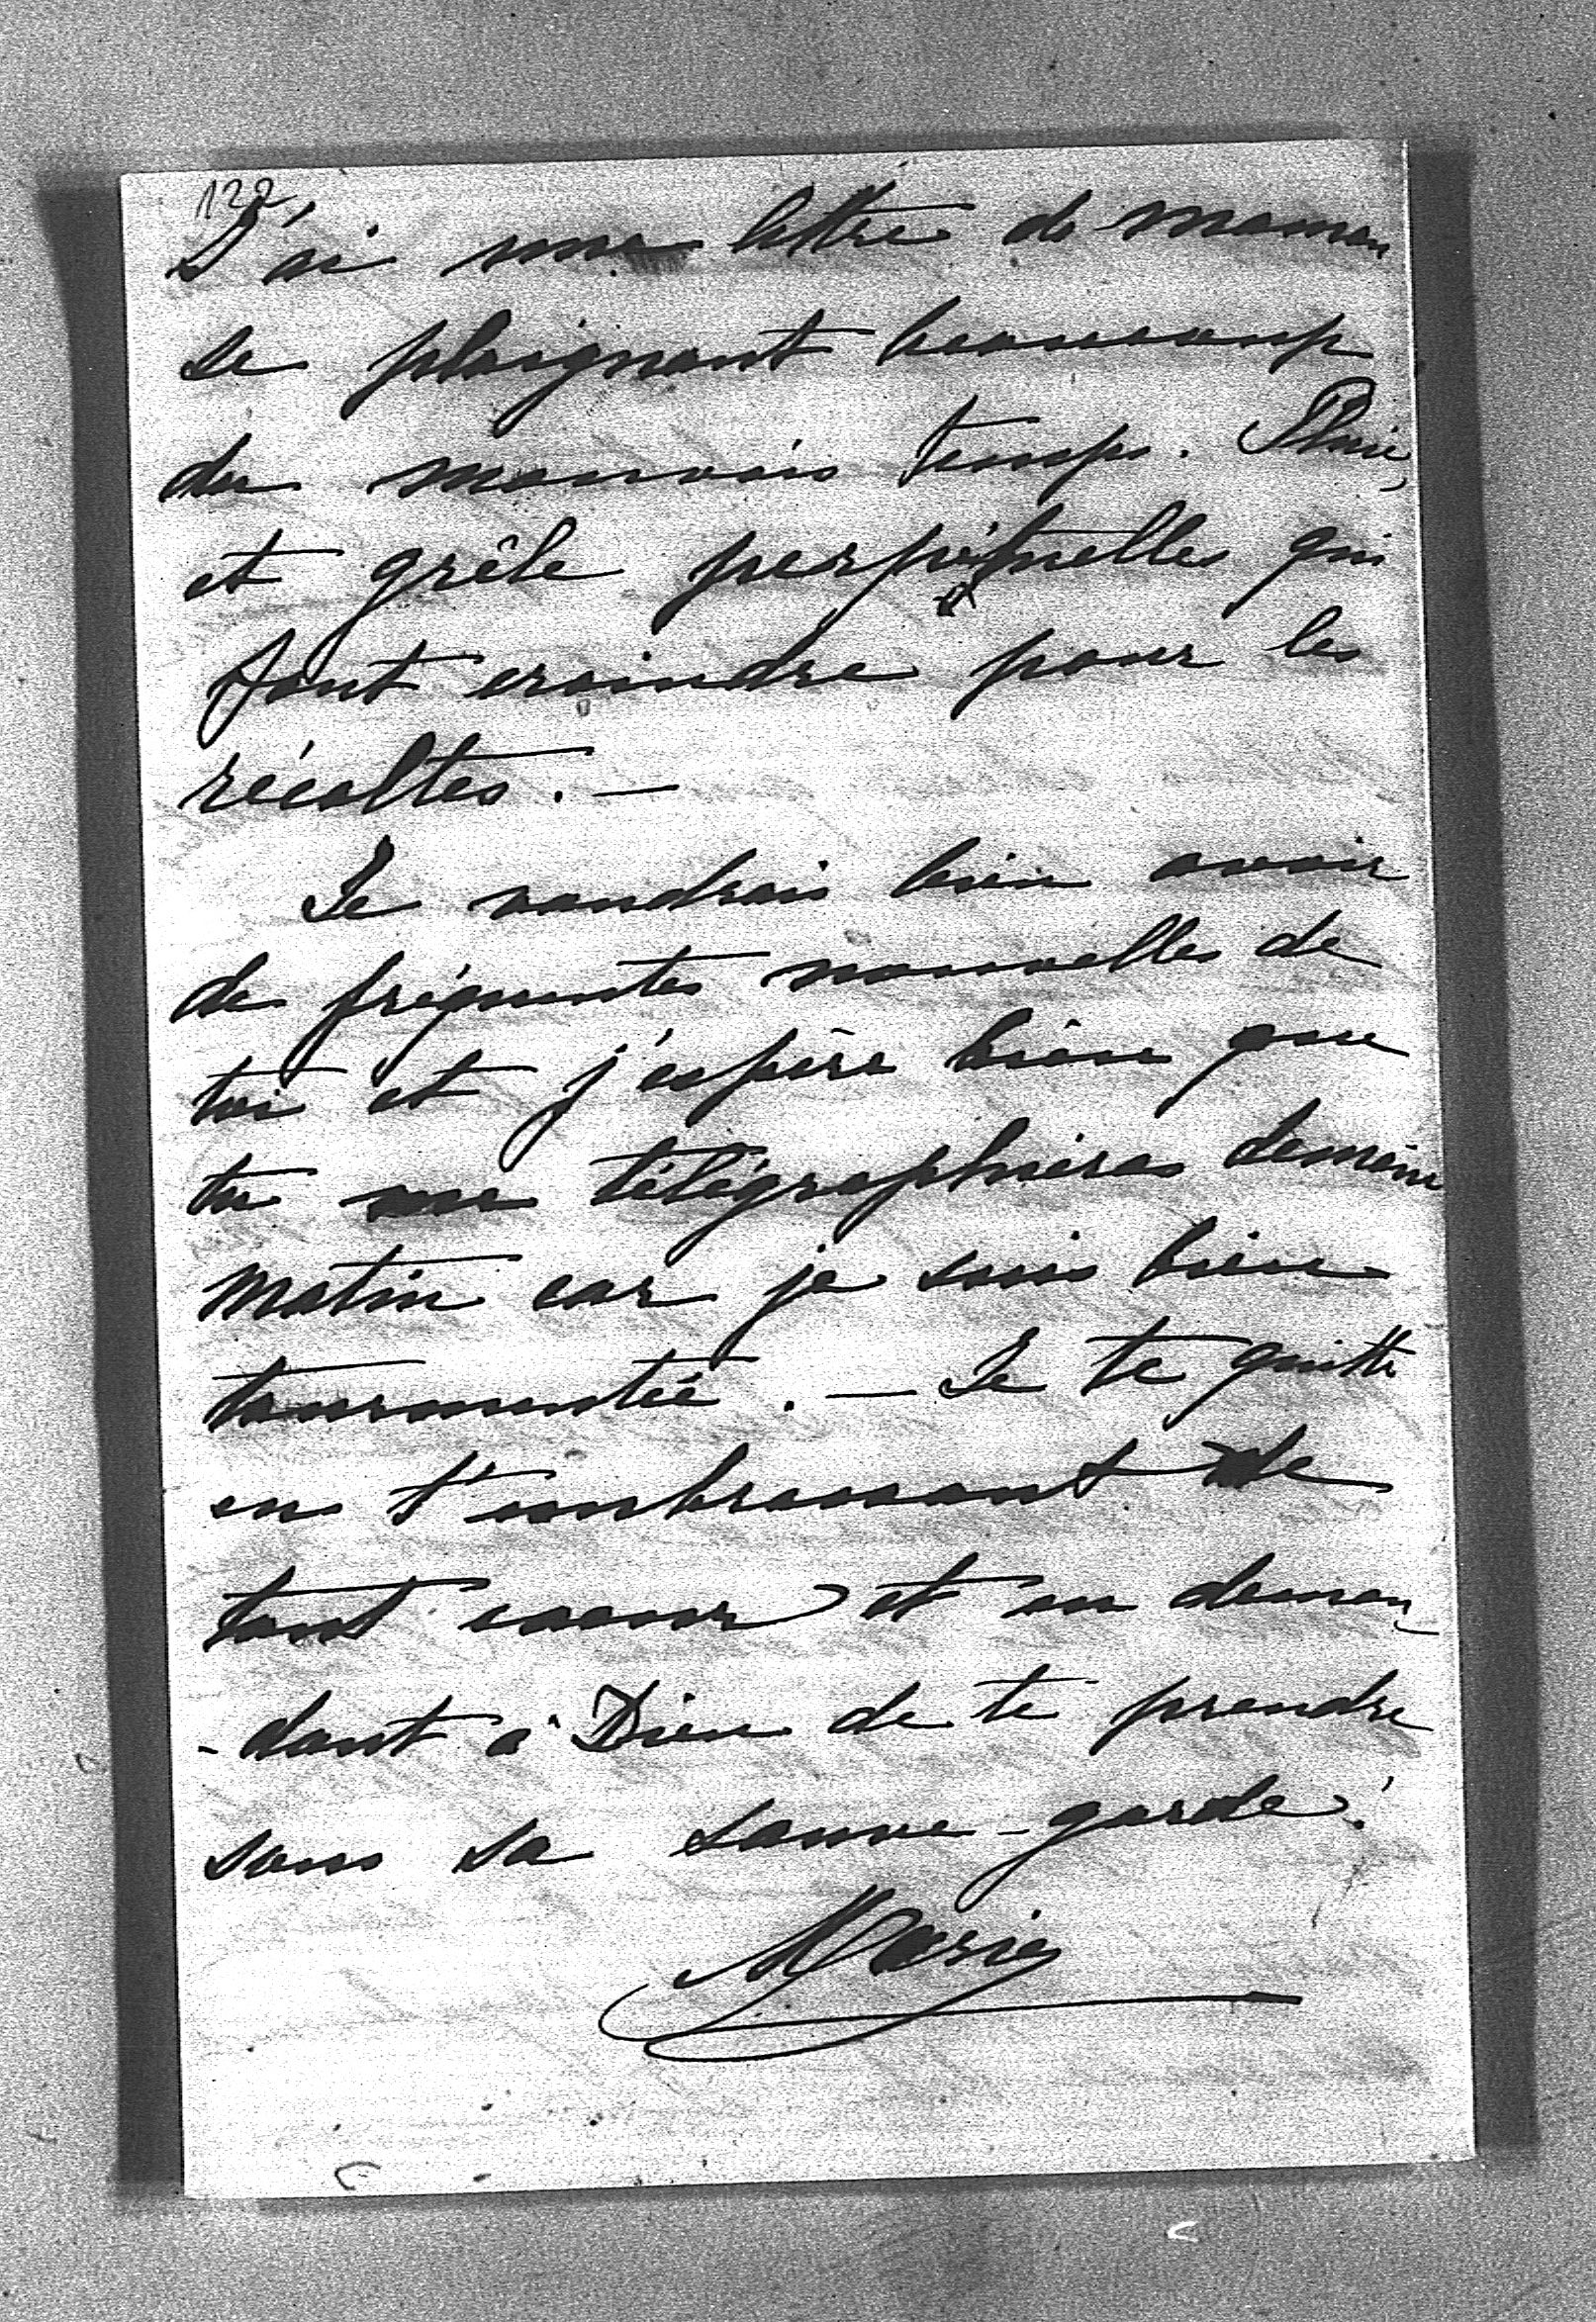 122
J'ai une lettre de maman
se plaignant beaucoup
du mauvais temps. Pluie,
et grêle perpétuelles qui
font craindre pour les
récoltes. —
Je voudrais bien avoir
de fréquentes nouvelles de
toi et j'espère bien que
tu me télégraphieras demain
matin car je suis bien
tourmentée. — Je te quitte
en t'embrassant de
tout coeur et en deman
- dant à Dieu de te prendre
sous sa sauve-garde!
Marie